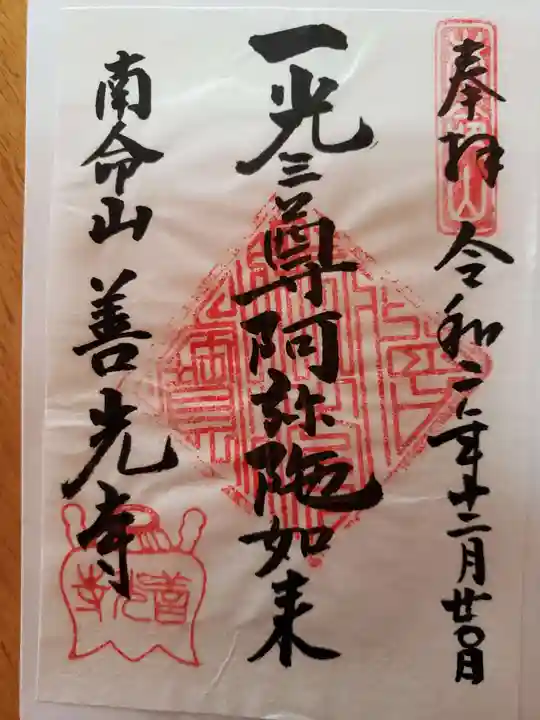 奉拝 令和二年十二月廿〇日
一光三尊阿弥陀如来
南命山 善光寺
善光寺